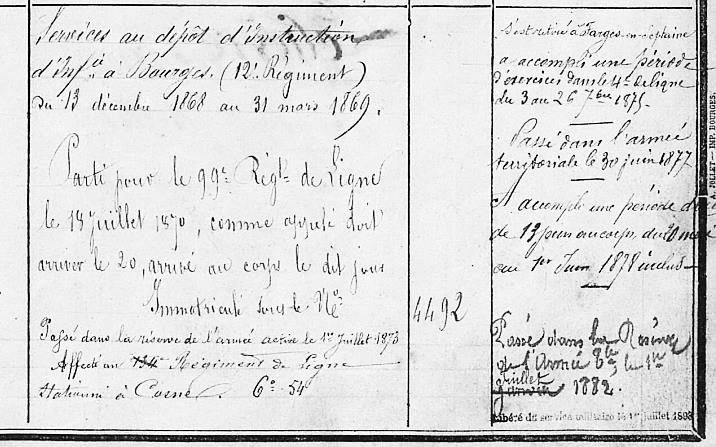 Services au dépôt d'Instruction
d'Inf.ie à Bourges. (12e Régiment)
du 13 décembre 1868 au 31 mars 1869.
Parti pour le 99e Régt de Ligne
le 18 Juillet 1870, comme appelé doit
arriver le 20, arrivé au corps le dit jour
Immatriculé sous le No
4492
Passé dans la réserve de l'armée active le 1er Juillet 1873
Affecté au 134e Régiment de Ligne
stationné à Cosne. 6e 54
S'est retiré à Farges-en-Septaine
a accompli une période
d'exercices dans le 4e de ligne
du 3 au 26 7bre 1875.
Passé dans l'armée
territoriale le 30 juin 1877
A accompli une période
de 13 jours au corps, du 20 mai
au 1er Juin 1878 inclus
Passé dans la Réserve
de l'Armée le 1er
Juillet
Janvier 1882.
Libéré du service militaire le 1er juillet 1888
A. JOLLET — IMP. BOURGES.